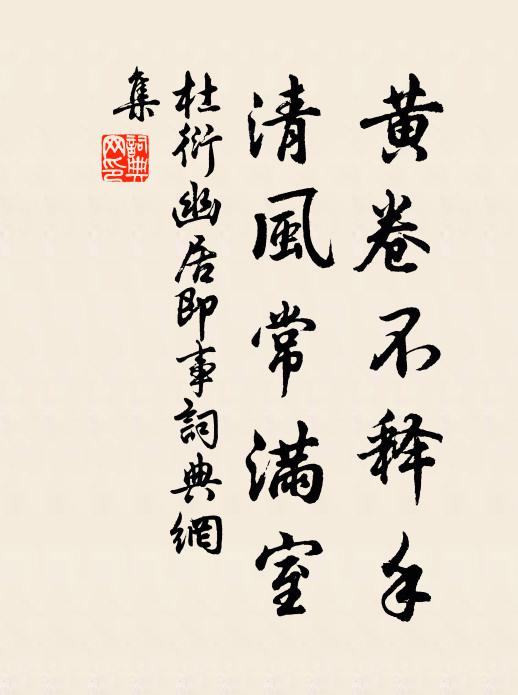 黄卷不释手
清風常滿室
杜衍幽居即事詞典網
集
詞典
网印